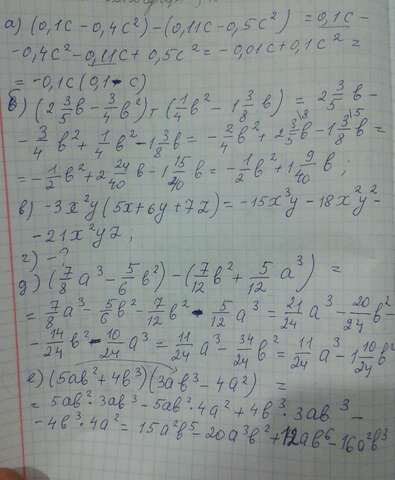 а) (0,1с - 0,4с²) - (0,11с - 0,5с²) = 0,1с -
- 0,4с² - 0,11с + 0,5с² = - 0,01с + 0,1с² =
= -0,1с (0,1 - с)
б) (2 3/5 в - 3/4 в²) + (1/4 в² - 1 3/8 в) = 2 3/5 в -
- 3/4 в² + 1/4 в² - 1 3/8 в = - 2/4 в² + 2 3/5 в - 1 3/8 в =
= - 1/2 в² + 2 24/40 в - 1 15/40 в = - 1/2 в² + 1 9/40 в ;
в) -3x²y (5x + 6y + 7z) = -15x³y - 18x²y² -
- 21x²yz ;
г) - ?
д) (7/8 a³ - 5/6 в²) - (7/12 в² + 5/12 a³) =
= 7/8 a³ - 5/6 в² - 7/12 в² - 5/12 a³ = 21/24 a³ - 20/24 в² -
- 14/24 в² - 10/24 a³ = 11/24 a³ - 34/24 в² = 11/24 a³ - 1 10/24 в²
е) (5aв² + 4в³)(3aв³ - 4a²) =
= 5aв² · 3aв³ - 5aв² · 4a² + 4в³ · 3aв³ -
- 4в³ · 4a² = 15a²в⁵ - 20a³в² + 12aв⁶ - 16a²в³